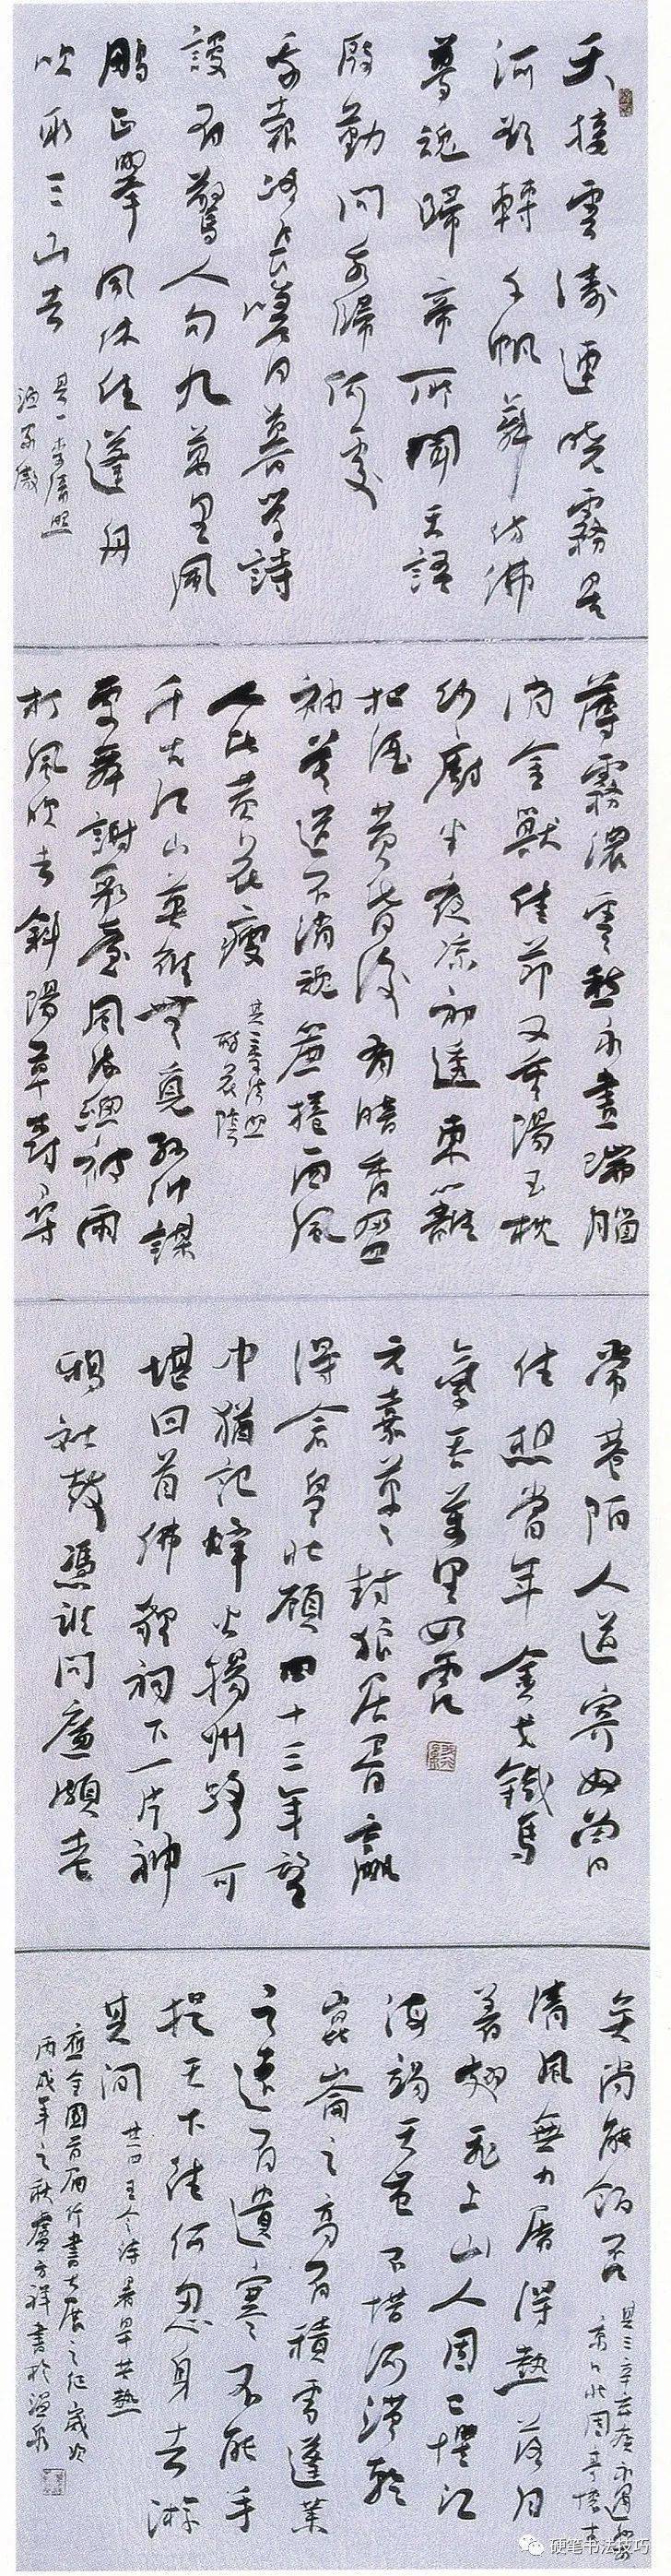 天接雲濤連曉霧星
河欲轉千帆舞彷佛
夢魂歸帝所聞天語
殷勤問我歸何處
我報路長嗟日暮學詩
謾有驚人句九萬里風
鵬正舉風休住蓬舟
吹取三山去
其一李清照
漁家傲
薄霧濃雲愁永晝瑞腦
消金獸佳節又重陽玉枕
紗廚半夜涼初透東籬
把酒黃昏後有暗香盈
袖莫道不消魂簾捲西風
人比黃花瘦
其二李清照
醉花陰
千古江山英雄無覓孫仲謀
處舞榭歌臺風流總被雨
打風吹去斜陽草樹尋
常巷陌人道寄奴曾
住想當年金戈鐵馬
氣吞萬里如虎
元嘉草草封狼居胥贏
得倉皇北顧四十三年望
中猶記烽火揚州路可
堪回首佛貍祠下一片神
鴉社鼓憑誰問廉頗老
矣尚能飯否
其三辛棄疾永遇樂
京口北固亭懷古
清風無力屠得熱落日
著翅飛上山人固已懼江
海竭天豈不惜河漢乾
崑崙之高有積雪蓬萊
之遠有遺寒不能手
提天下往何忍身去游
其間
其四王令詩暑旱苦熱
應全國首屆行書大展之征歲次
丙戌年之秋盧方祥書於溫泉
硬笔书法技巧